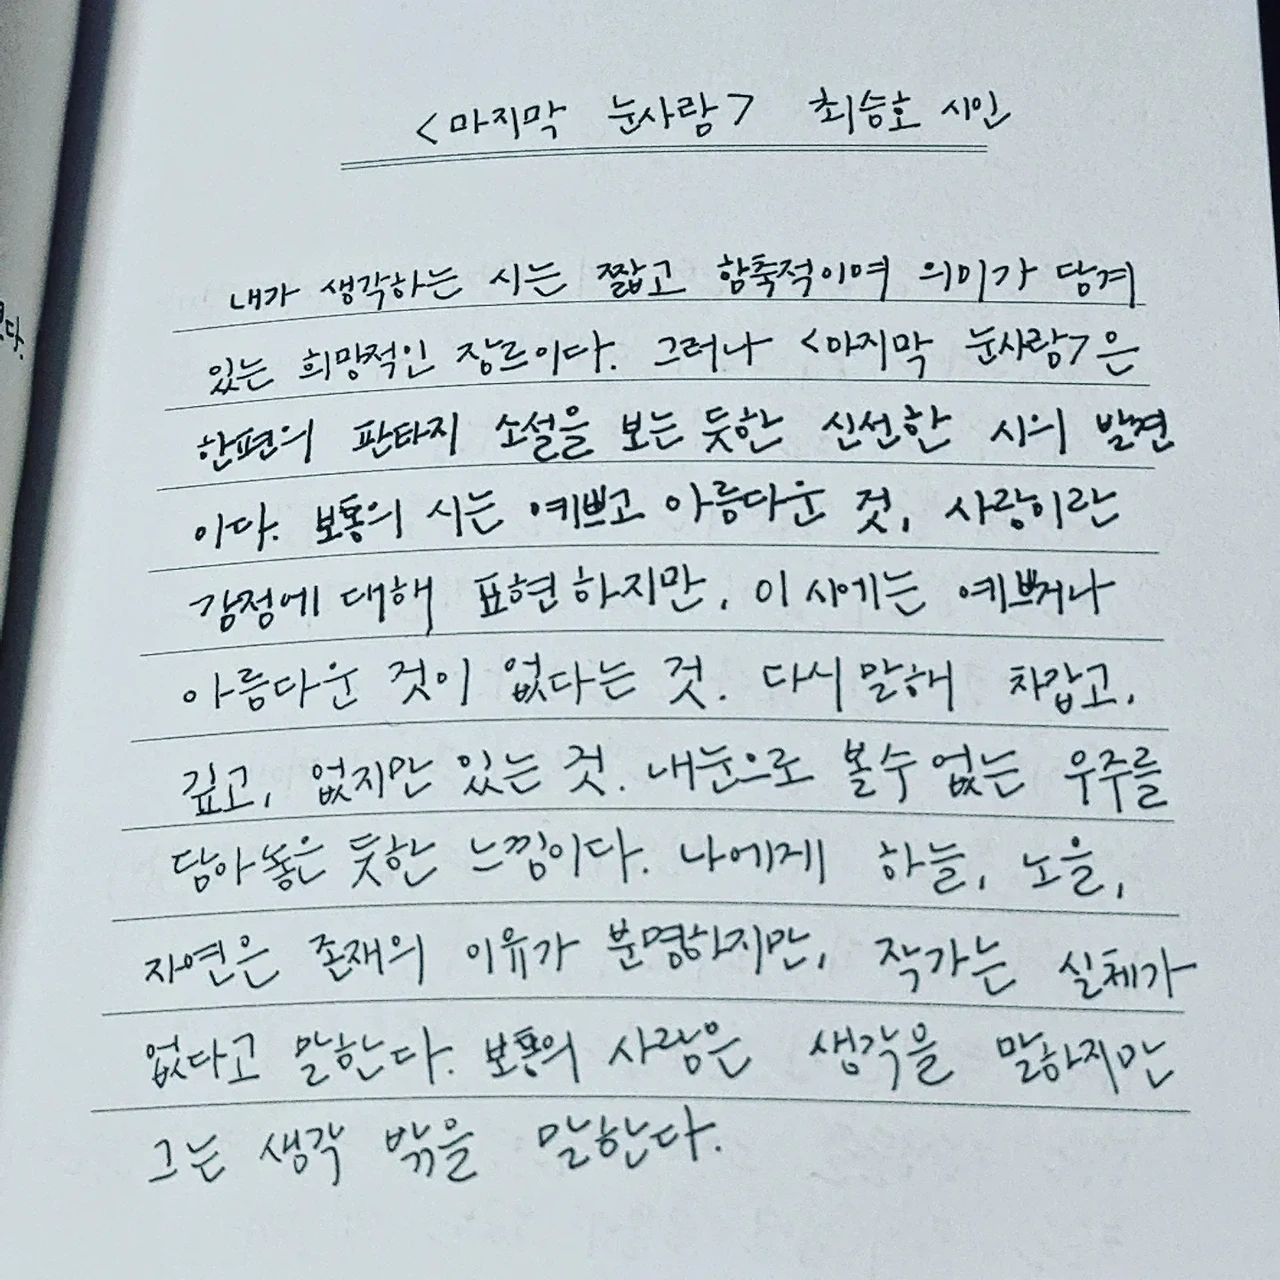 <마지막 눈사람> 최승호 시인
내가 생각하는 시는 짧고 함축적이며 의미가 담겨
있는 희망적인 장르이다. 그러나 <마지막 눈사람>은
한편의 판타지 소설을 보는 듯한 신선한 시의 발견
이다. 보통의 시는 예쁘고 아름다운 것, 사랑이란
감정에 대해 표현하지만, 이 시에는 예쁘거나
아름다운 것이 없다는 것. 다시 말해 차갑고,
깊고, 없지만 있는 것. 내눈으로 볼수 없는 우주를
담아놓은 듯한 느낌이다. 나에게 하늘, 노을,
자연은 존재의 이유가 분명하지만, 작가는 실체가
없다고 말한다. 보통의 사람은 생각을 말하지만
그는 생각 밖을 말한다.